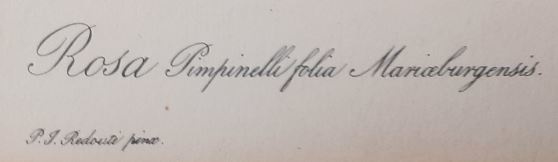 Rosa Pimpinelli folia Mariæburgensis.
P. J. Redouté pinx.